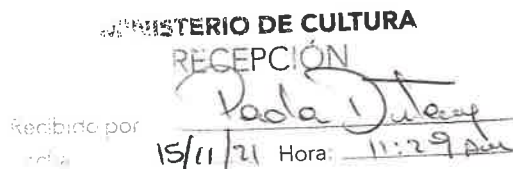 MINISTERIO DE CULTURA
RECEPCIÓN
Recibido por Paola
15/11/21 Hora: 11:29 am